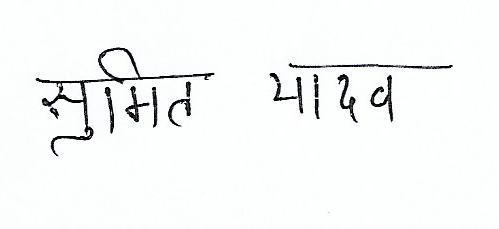 सुमित यादव